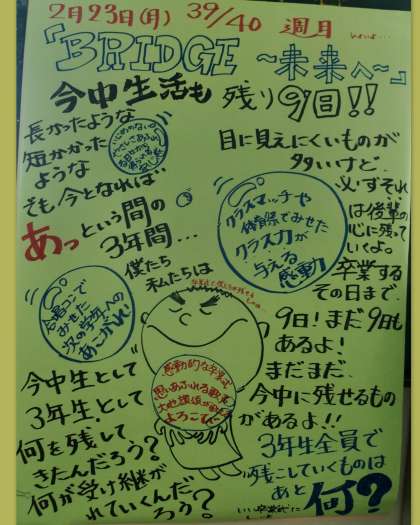 2月23日(月) 39/40 週月
『BRIDGE ～未来へ～』
今中生活も 残り9日!!
長かったような
短かかった
ような
そも今となれば
あっという間の
3年間…
僕たち
私たちは
目に見えにくいものが
多いけど、
必ずそれ
は後輩の
心に残って
いくよ。
卒業する
その日まで、
クラスマッチや
体育祭でみせた
クラス力が
与える
感動
合唱コンで
みせた
次の学年への
あこがれ!
感動的な卒業式
思いあふれる歌声
よろこび
今中生として
3年生として
何を残して
きたんだろう?
何が受け継が
れていくんだ
ろう?
9日!まだ9日も
あるよ!
まだまだ、
今中に残せるもの
があるよ!!
3年生全員で
残こしていくものは
あと
何?